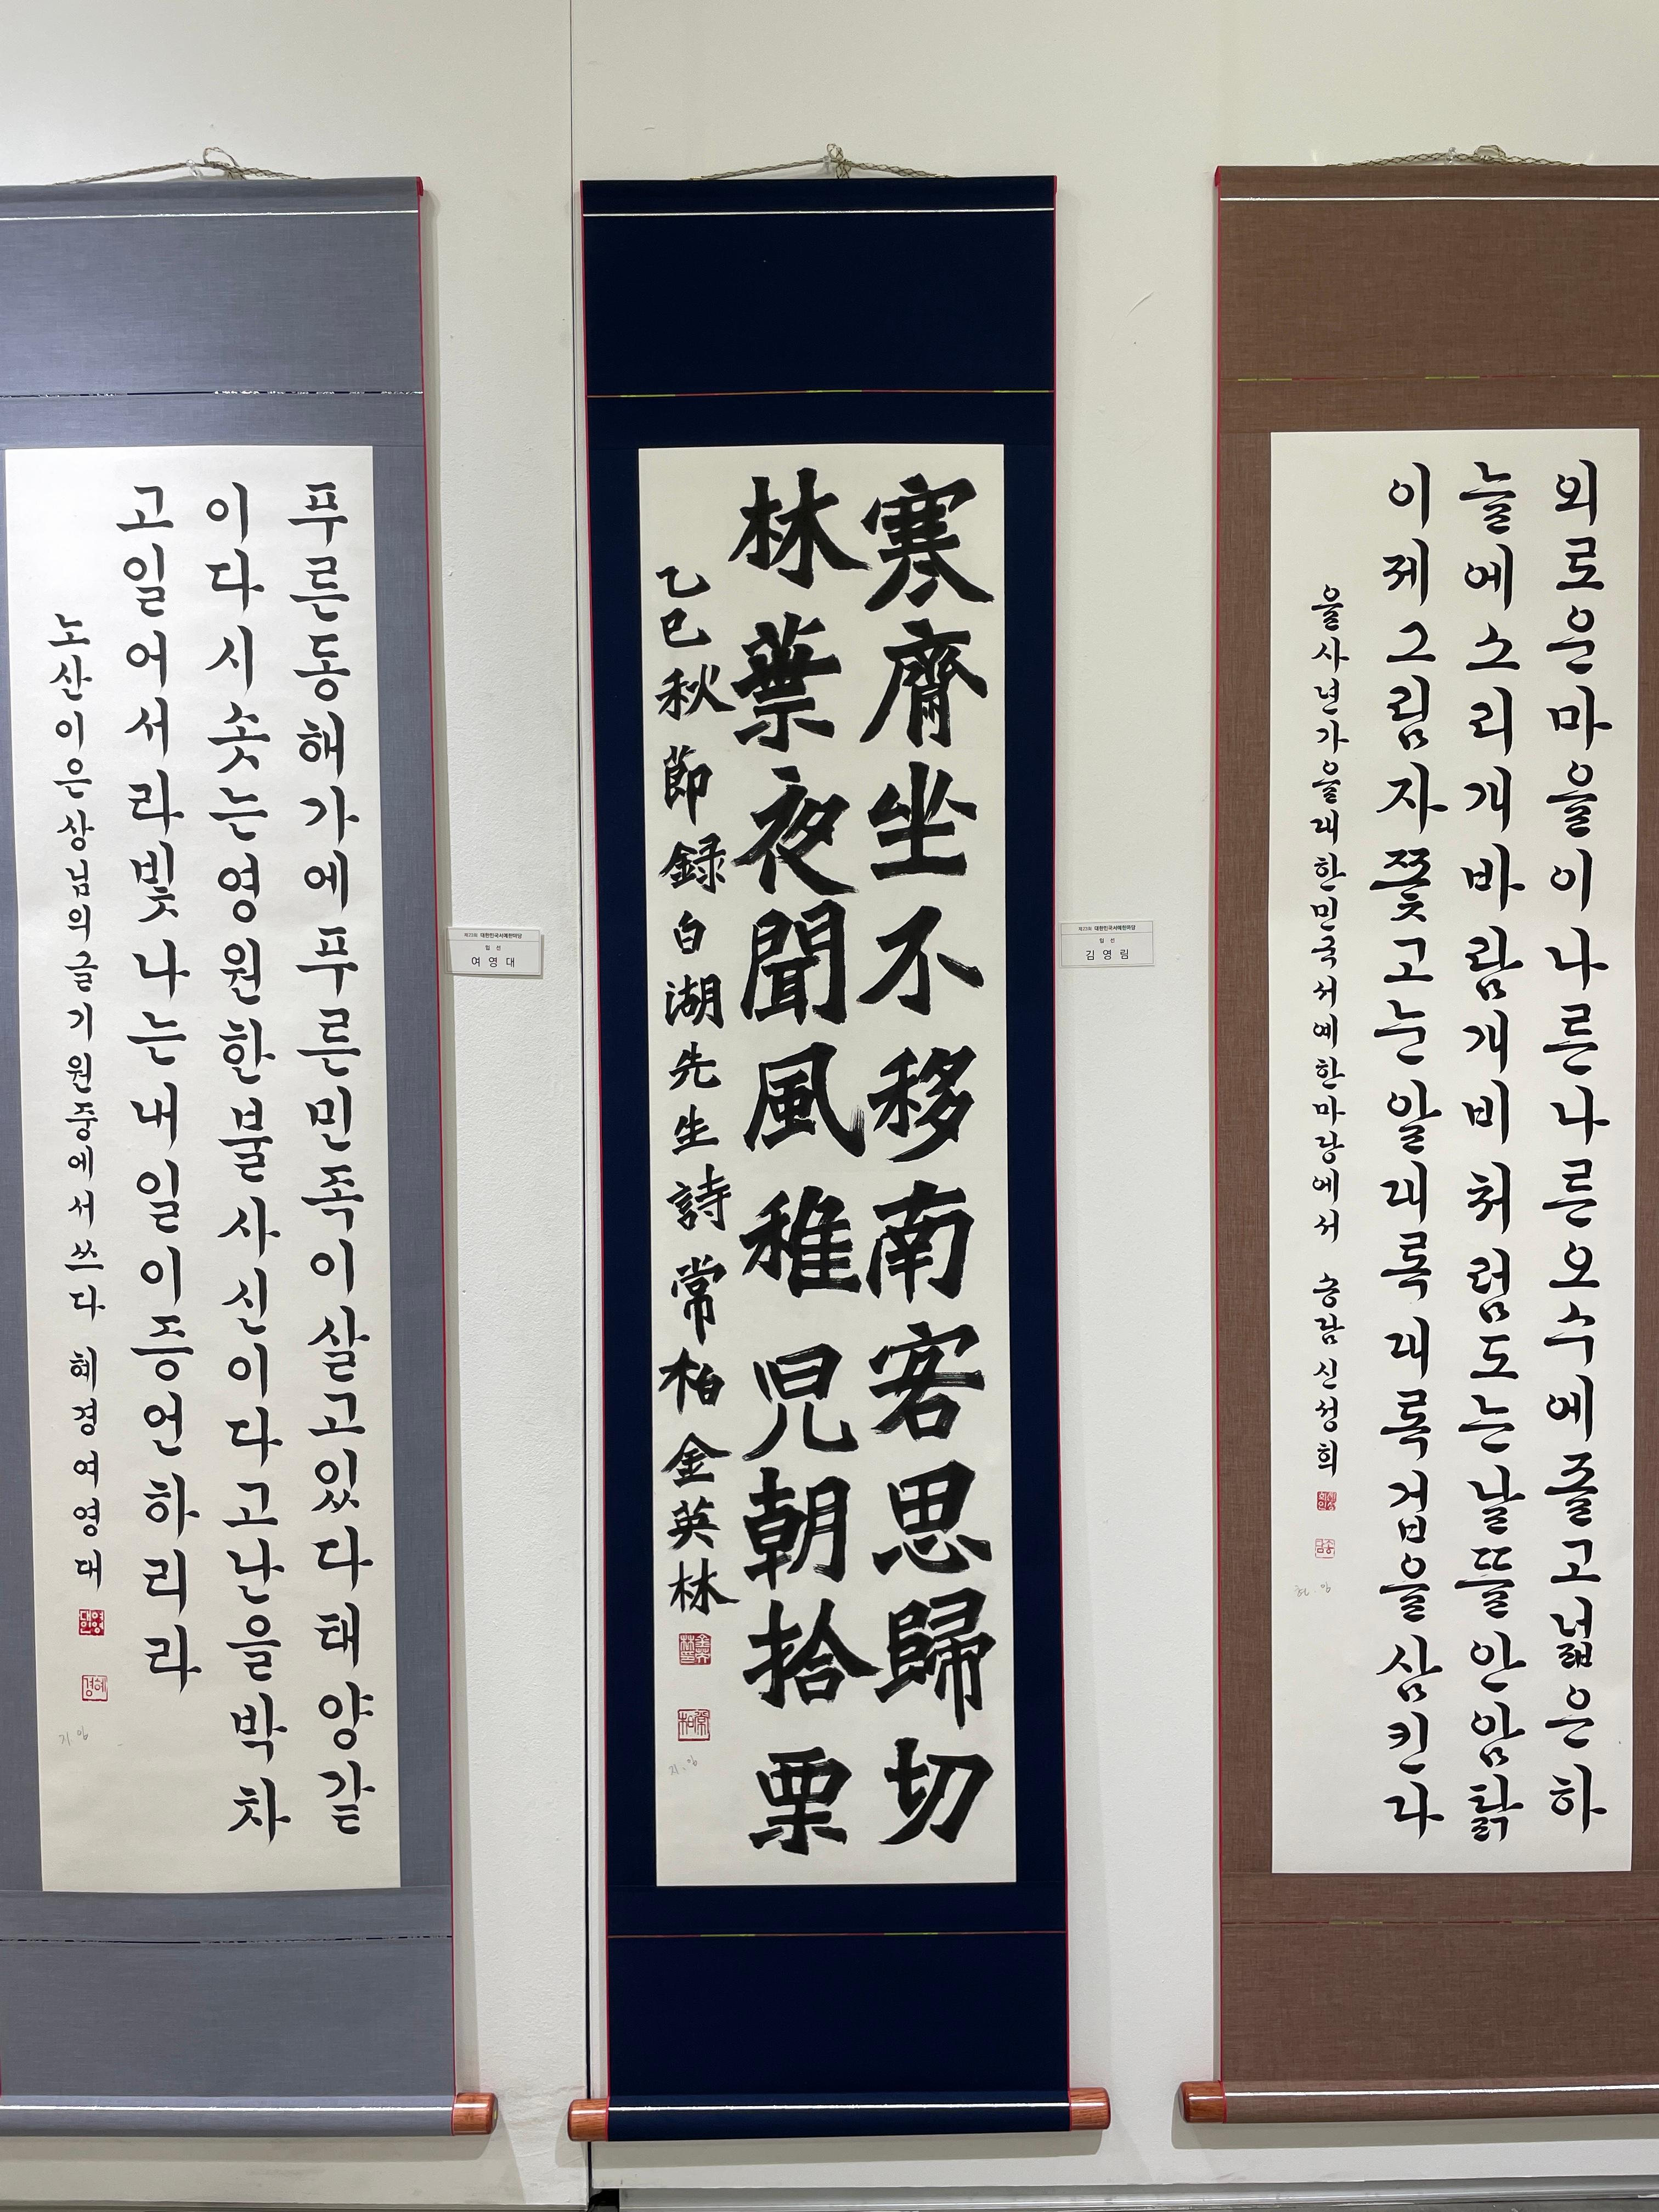 푸른동해가에푸른민족이살고있다태양같
이다시솟는영원한불사신이다고난을박차
고일어서라빛나는내일이증언하리라
노산이은상님의글기원중에서쓰다 혜경여영대
제23회 대한민국서예한마당
입 선
여 영 대
寒齋坐不移南客思歸切
林葉夜聞風稚児朝拾栗
乙巳秋節録白湖先生詩常柏金英林
제23회 대한민국서예한마당
입 선
김 영 림
외로운마을이나른나른오수에졸고넓은하
늘에소리개바람개비처럼도는날뜰안암탉
이제그림자쫓고눈알대록대록겁을삼킨다
을사년가을대한민국서예한마당에서 신성희